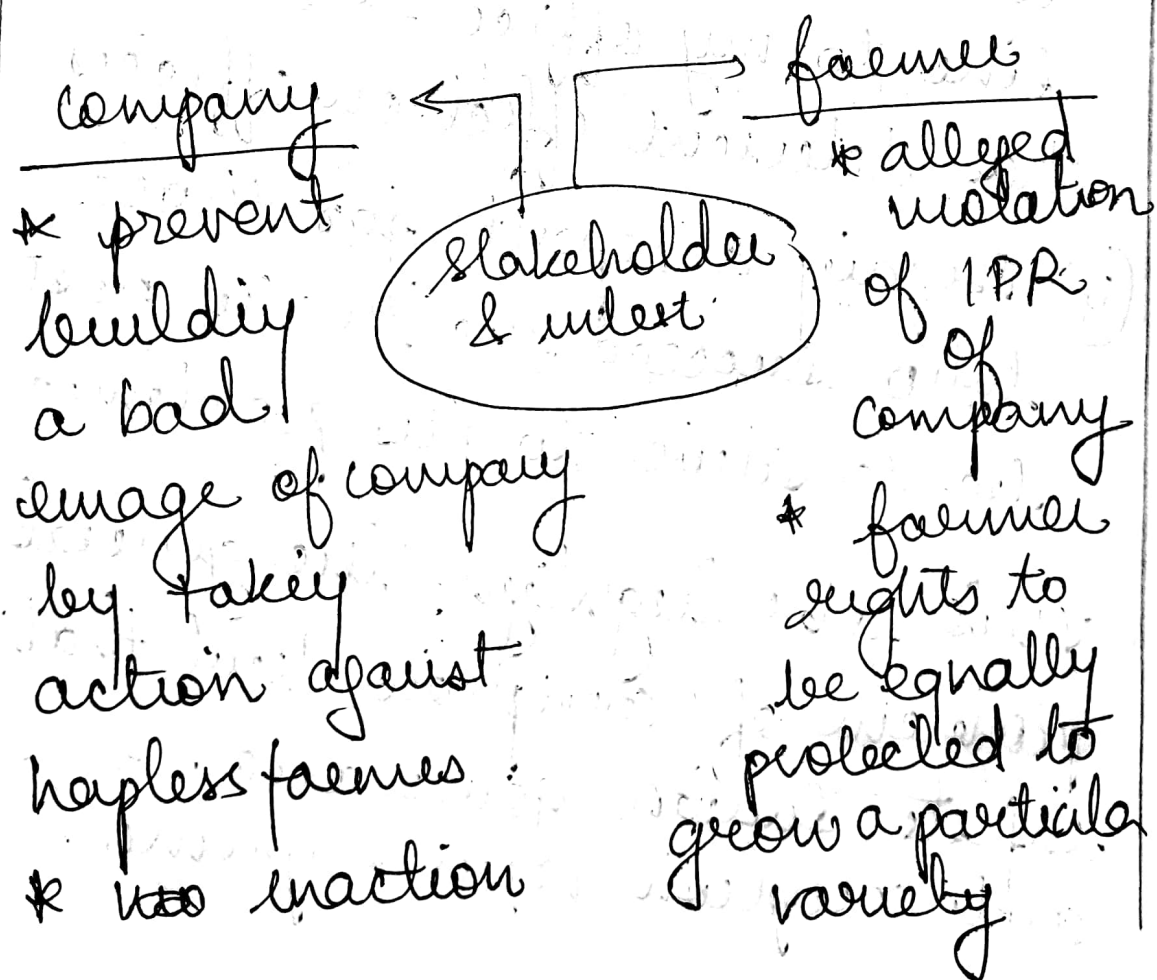 company
* prevent
building
a bad
image of company
by taking
action against
hapless farmers
* inaction
stakeholder
& interest
farmer
* alleged
violation
of IPR
of
company
* farmer
rights to
be equally
protected to
grow a particular
variety